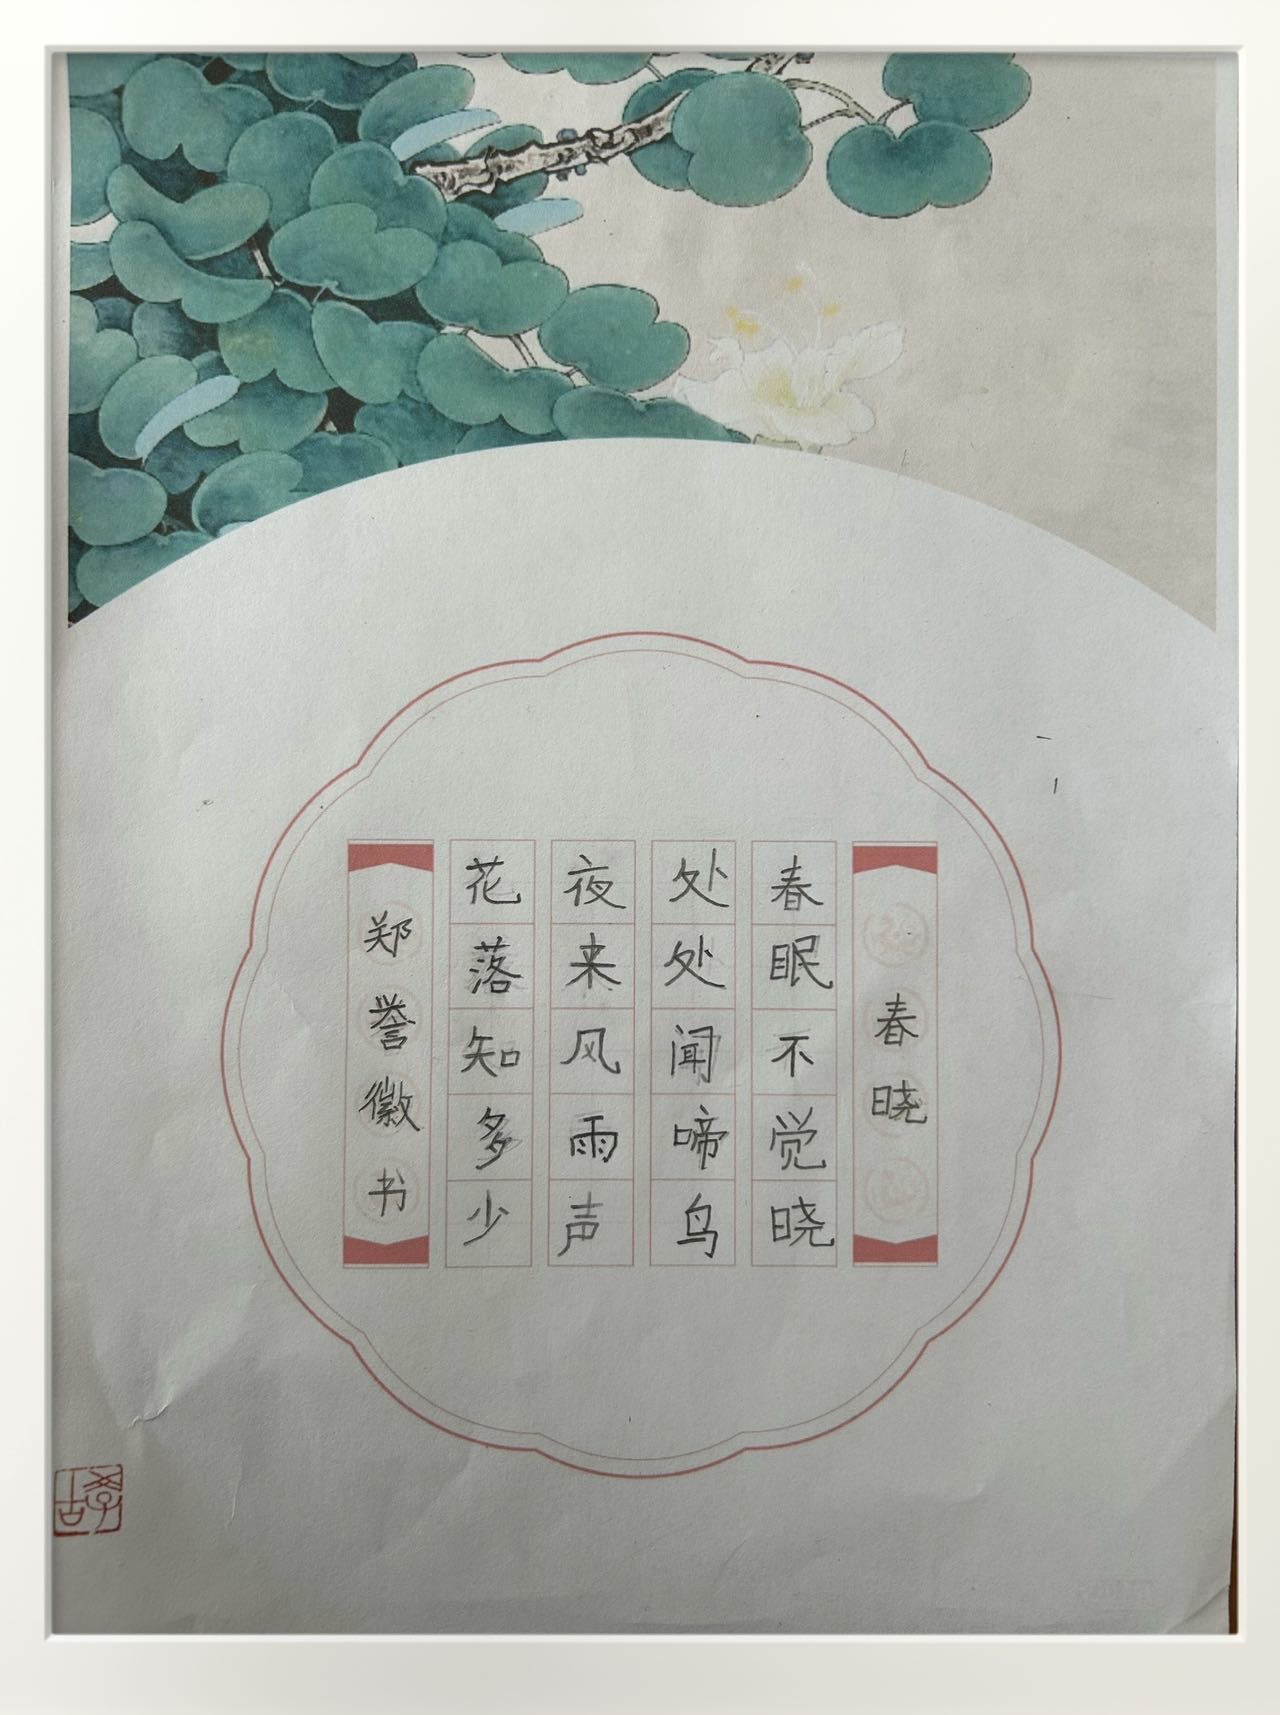 春晓
春眠不觉晓
处处闻啼鸟
夜来风雨声
花落知多少
郑誉徽书